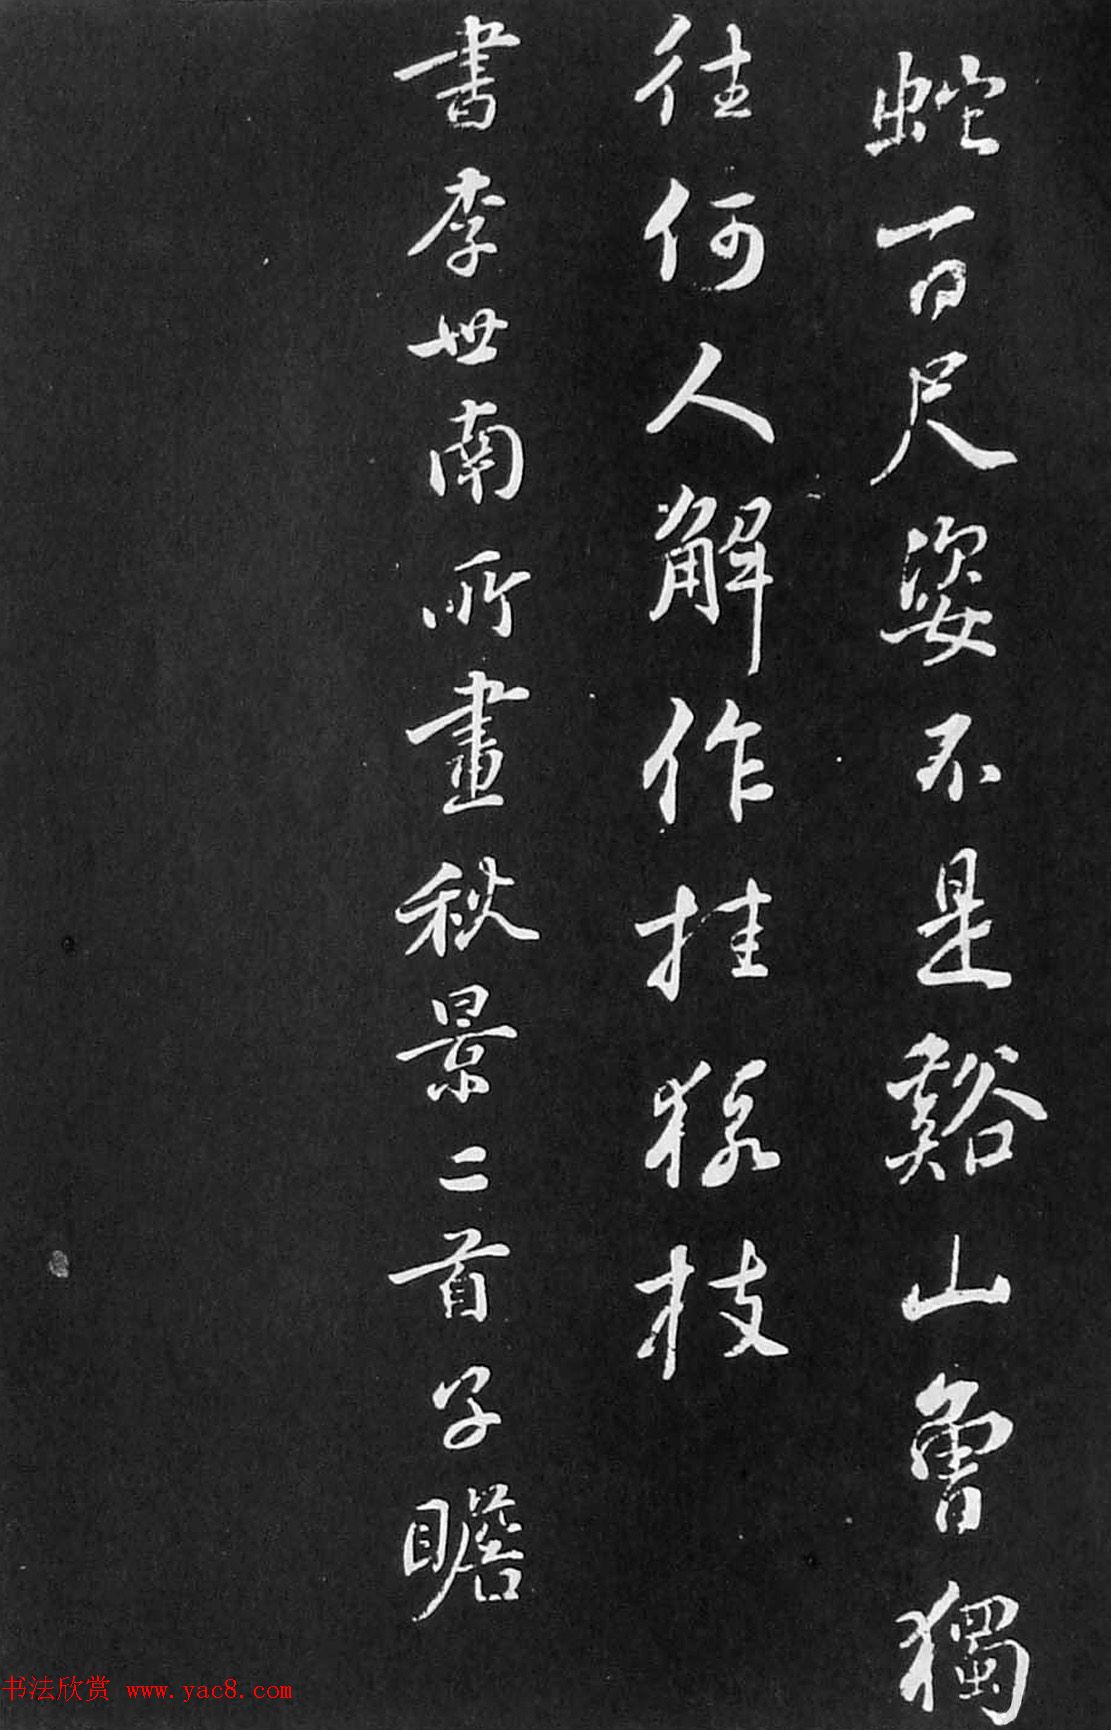 蛇百尺姿不是谿山曾獨
往何人解作挂猿枝
書李世南所畫秋景二首子瞻
书法欣赏 www.yac8.com